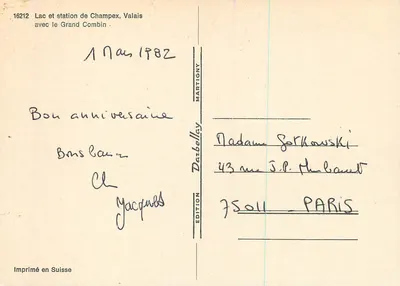 16212 Lac et station de Champex, Valais
avec le Grand Combin
1 Mars 1982
Bon anniversaire
Jacques
EDITION Darbellay MARTIGNY
Madame Gotkowski
43 rue J.P. Timbaud
75011 PARIS
Imprimé en Suisse